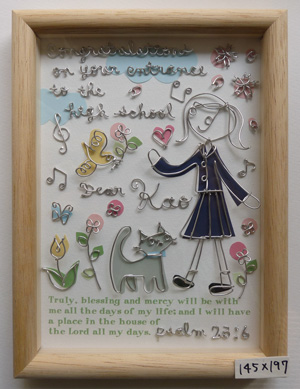 Congratulations
on your entrance
to the
high school
Dear Kao
Truly, blessing and mercy will be with
me all the days of my life; and I will have
a place in the house of
the Lord all my days.
psalm 23:6
145×197